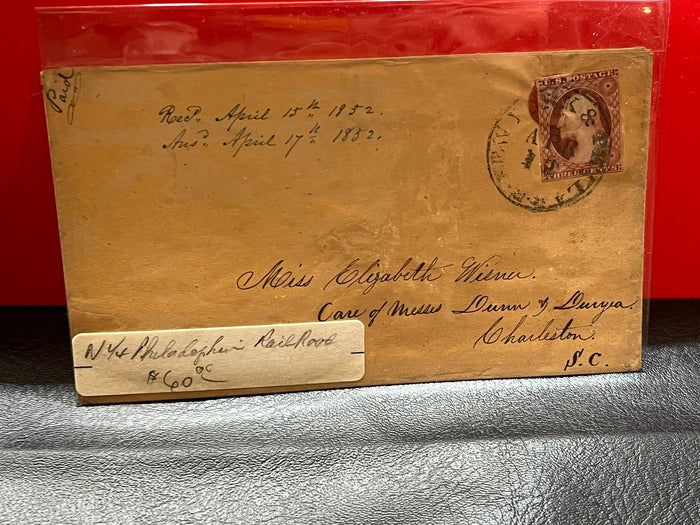 Paid
Recd. April 15th 1852.
Ansd. April 17th 1852.
U.S. POSTAGE
THREE CENTS
NEW Y & PHILA R.R.
Miss Elizabeth Wisner.
Care of Messes Dunn & Duryea
Charleston.
S.C.
N.Y & Philadephia RailRoad
$60.00